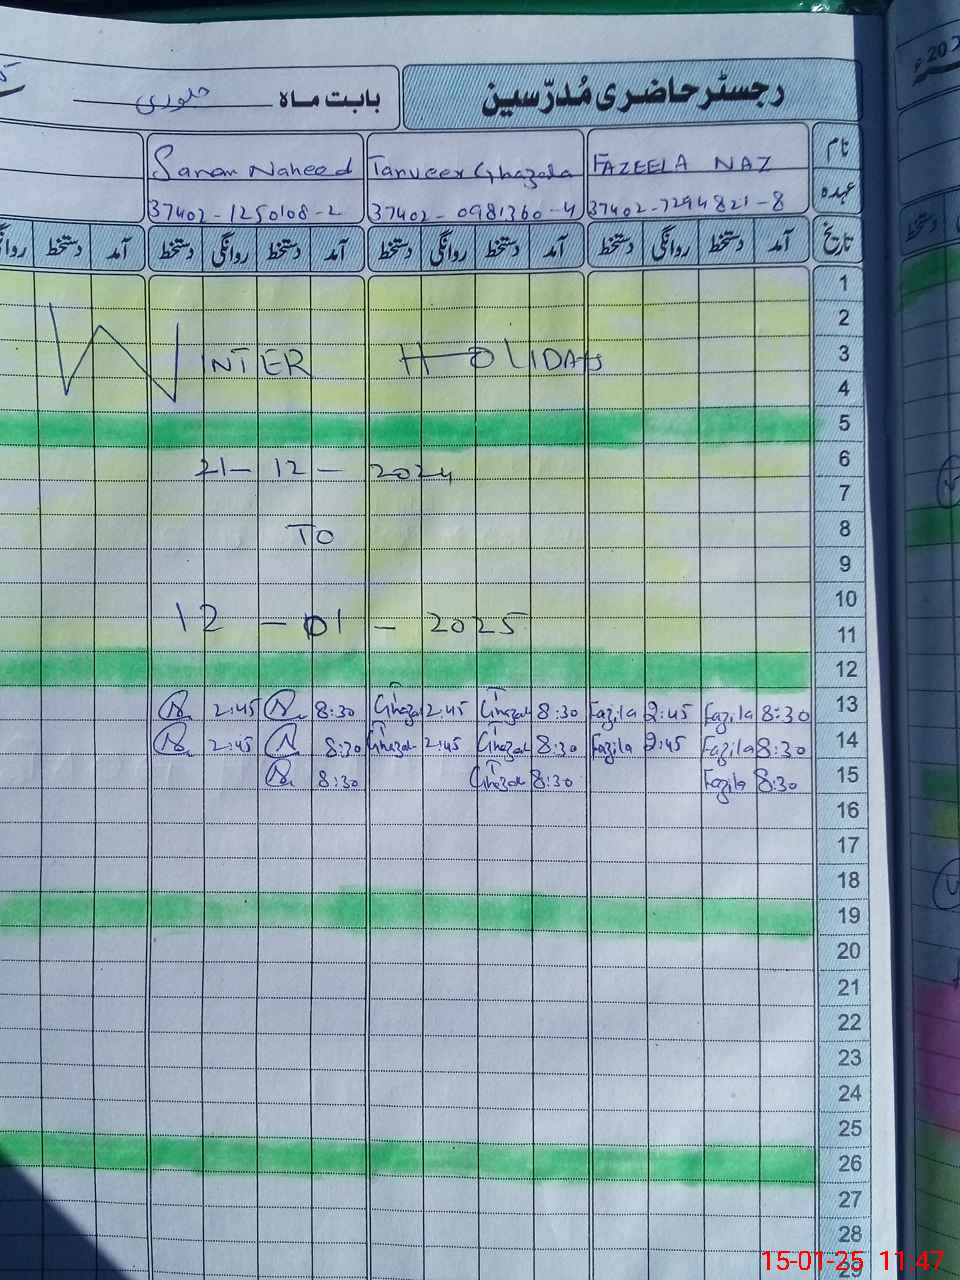 رجسٹر حاضری مُدرّسین
بابت ماہ جنوری
نام FAZEELA NAZ Tanveer Ghazala Sanam Naheed
عہدہ 37402-7294821-8 37402-0981360-4 37402-1250108-2
تاریخ آمد دستخط روانگی دستخط آمد دستخط روانگی دستخط آمد دستخط روانگی دستخط آمد دستخط
1
2
3
WINTER HOLIDAYS
4
5
6
21-12-2024
7
8
TO
9
10
11
12-01-2025
12
13 8:30 Fazila 2:45 Fazila 8:30 Ghazal 2:45 Ghazal 8:30 2:45
14 8:30 Fazila 2:45 Fazila 8:30 Ghazal 2:45 Ghazal 8:30 2:45
15 8:30 Fazila 8:30 Ghazal 8:30
16
17
18
19
20
21
22
23
24
25
26
27
28
29
15-01-25 11:47